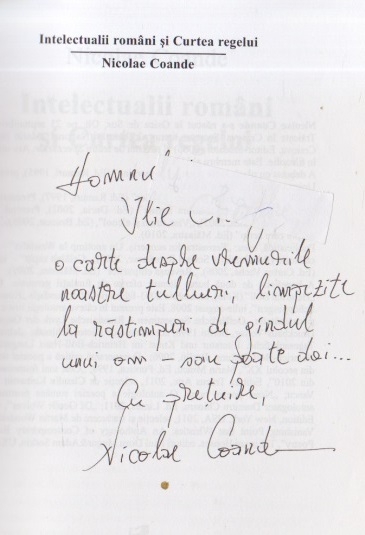 Intelectualii români și Curtea regelui
Nicolae Coande
Domnu
Ilie
o carte despre vremurile
noastre tulburi, limpezite
la răstimpuri de gîndul
unui om – sau poate doi...
Cu prețuire,
Nicolae Coande